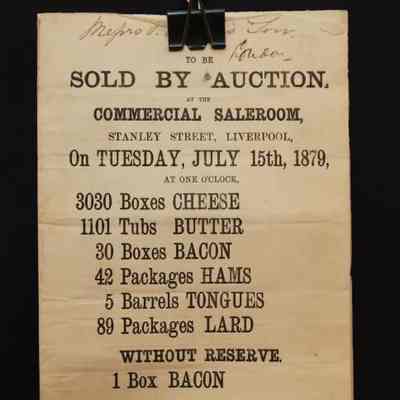 Messrs Son
London
TO BE
SOLD BY AUCTION,
AT THE
COMMERCIAL SALEROOM,
STANLEY STREET, LIVERPOOL,
On TUESDAY, JULY 15th, 1879,
AT ONE O'CLOCK,
3030 Boxes CHEESE
1101 Tubs BUTTER
30 Boxes BACON
42 Packages HAMS
5 Barrels TONGUES
89 Packages LARD
WITHOUT RESERVE,
1 Box BACON